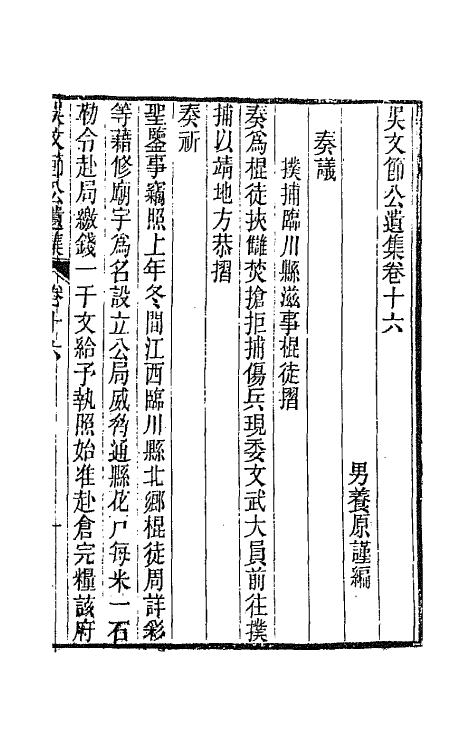 吳文節公遺集卷十六
男養原謹編
奏議
撲捕臨川縣滋事棍徒摺
奏爲棍徒挾讎焚搶拒捕傷兵現委文武大員前往撲
捕以靖地方恭摺
奏祈
聖鑒事竊照上年冬間江西臨川縣北鄉棍徒周詳彩
等藉修廟宇爲名設立公局威脅通縣花户每米一石
勒令赴局繳錢一千文給予執照始准赴倉完糧該府
吳文節公遺集 卷十六 一